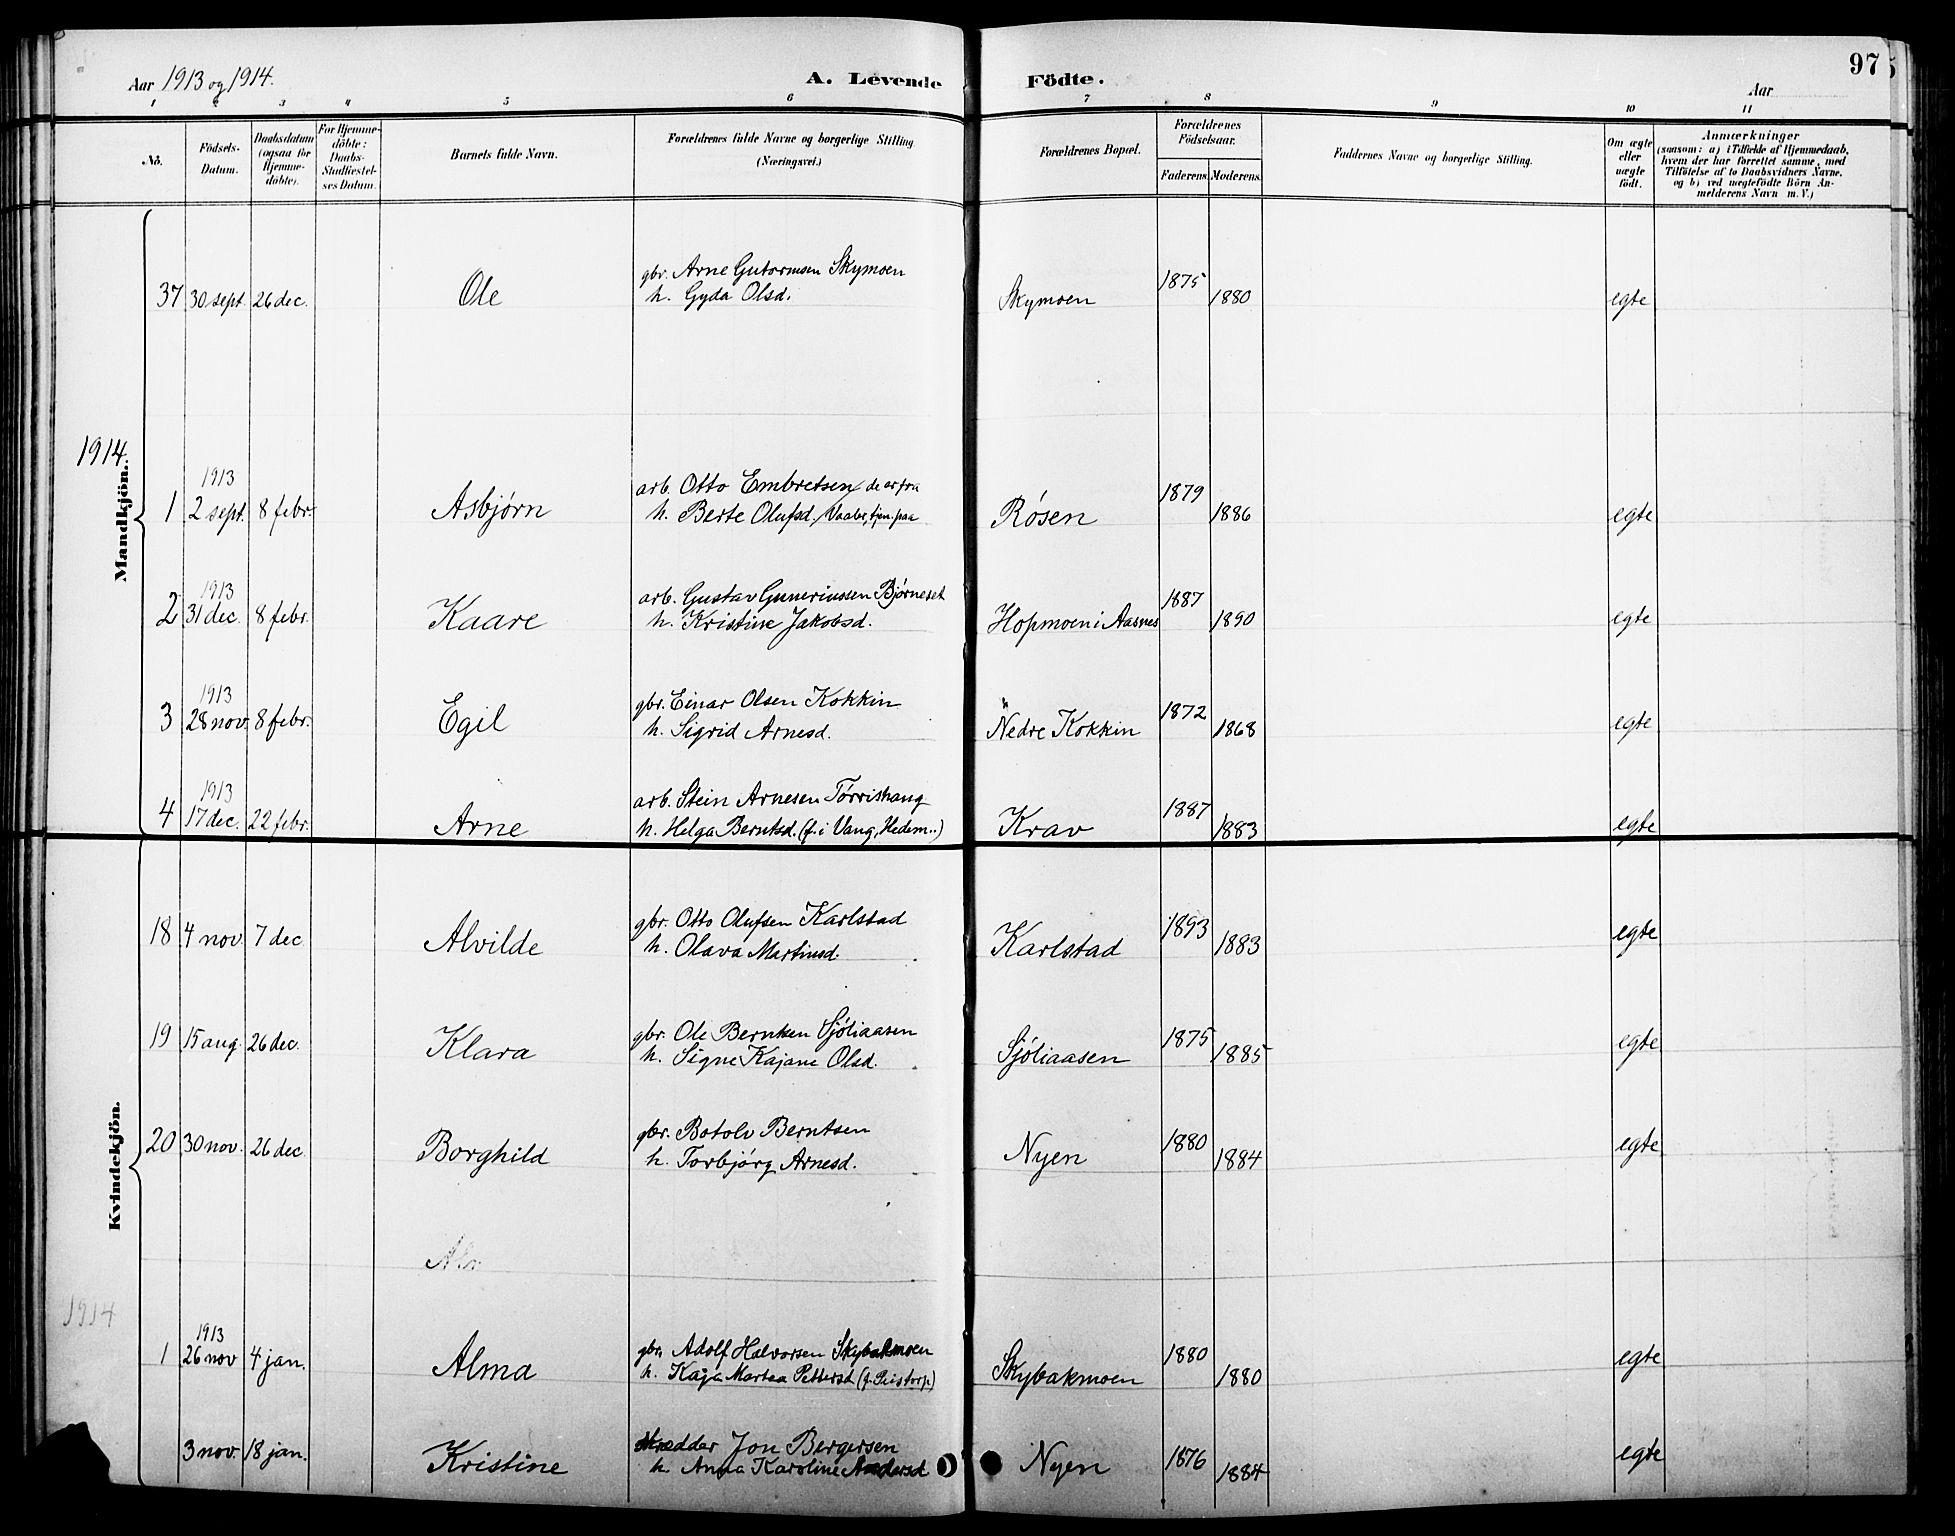 97
Aar 1913 og 1914.
A. Levende Födte.
Aar
1 2 3 4 5 6 7 8 9 10 11
No.
Födsels-Datum.
Daabsdatum (ogsaa for Hjemme-döbte).
For Hjemme-döbte: Daabs-Stadfæstel-ses Datum.
Barnets fulde Navn.
Forældrenes fulde Navne og borgerlige Stilling (Næringsvei.)
Forældrenes Bopæl.
Forældrenes Födselsaar.
Faderens. Moderens.
Faddernes Navne og borgerlige Stilling.
Om ægte eller uægte födt.
Anmærkninger
(saasom: a) i Tilfælde af Hjemmedaab,
hvem der har forrettet samme, med
Tilföielse af to Daabsvidners Navne,
og b) ved uægtefödte Börn An-
melderens Navn m. V.)
Mandkjön.
37 30 sept. 26 dec. Ole gbr. Arne Gutormsen Skymoen Skymoen 1875 1880 egte
h. Gyda Olsd.
1914.
1913
1 2 sept. 8 febr. Asbjørn arb. Otto Embretsen de er fra Røsen 1879 1886 egte
h. Berte Olufsd. Vaaler, tjen. paa
1913
2 31 dec. 8 febr. Kaare arb. Gustav Guneriussen Bjørneset Hopmoen i Aasnes 1887 1890 egte
h. Kristine Jakobsd.
1913
3 28 nov. 8 febr. Egil gbr. Einar Olsen Kokkin Nedre Kokkin 1872 1868 egte
h. Sigrid Arnesd.
1913
4 17 dec. 22 febr. Arne arb. Stein Arnesen Tørrishaug Krav 1887 1883 egte
h. Helga Berntsd. (f. i Vang, Hedem..)
Kvindekjön.
18 4 nov. 7 dec Alvilde gbr. Otto Olufsen Karlstad Karlstad 1893 1883 egte
h. Olava Martinsd.
19 15 aug. 26 dec. Klara gbr. Ole Berntsen Sjøliaasen Sjøliaasen 1875 1885 egte
h. Signe Kajane Olsd.
20 30 nov. 26 dec Borghild gbr. Botolv Berntsen Nyen 1880 1884 egte
h. Torbjørg Arnesd.
1914
1913
1 26 nov 4 jan. Alma gbr. Adolf Halvorsen Skybakmoen Skybakmoen 1880 1880 egte
h. Kaja Martea Pettersd
3 nov. 18 jan. Kristine skredder Jon Bergersen Nyen 1876 1884 egte
h. Anna Karoline Andersd